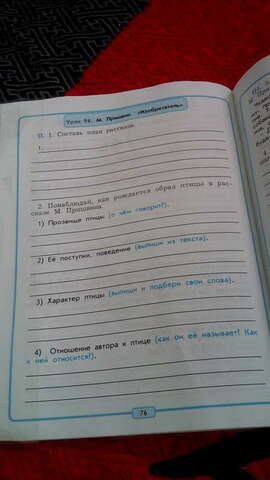 Урок 94. М. Пришвин. «Изобретатель»
П. 1. Составь план рассказа.
1.
2. Понаблюдай, как рождается образ птицы в рас-
сказе М. Пришвина.
1) Прозвище птицы (о чём говорит?).
2) Её поступки, поведение (выпиши из текста).
3) Характер птицы (выпиши и подбери свои слова).
4) Отношение автора к птице (как он её называет? Как
к ней относится?).
76